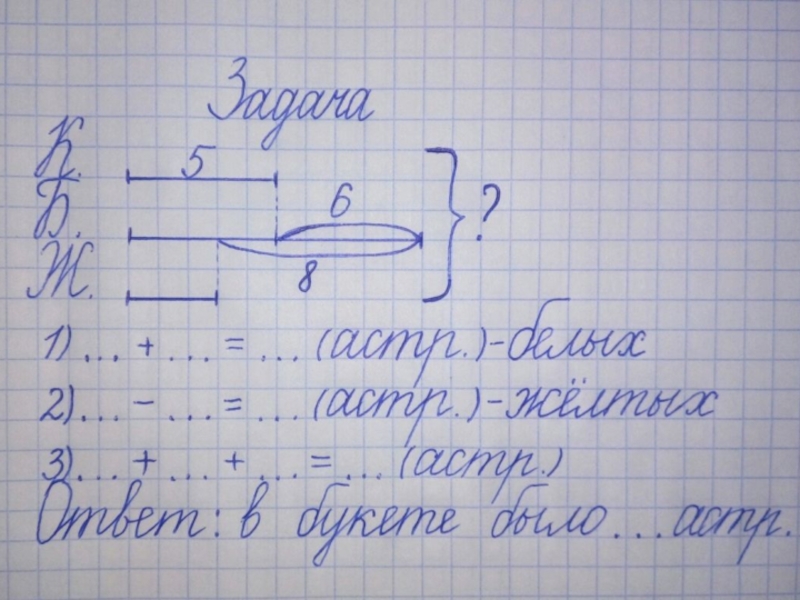 Задача
К. 5
6
Б. ?
8
Ж.
1)... + ... = ... (астр.)-белых
2)... - ... = ... (астр.)-жёлтых
3)... + ... + ... = ... (астр.)
Ответ: в букете было ... астр.